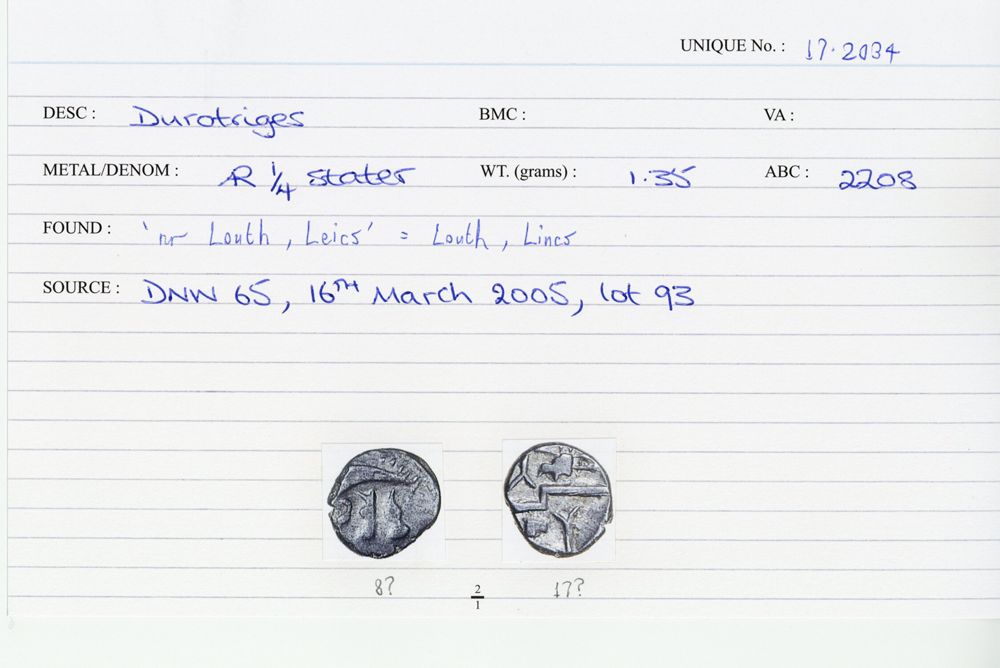 UNIQUE No. : 17.2034
DESC : Durotriges BMC : VA :
METAL/DENOM : AR 1/4 stater WT. (grams) : 1.35 ABC : 2208
FOUND : 'nr Louth, Leics' = Louth, Lincs
SOURCE : DNW 65, 16TH March 2005, lot 93
8? 2/1 17?